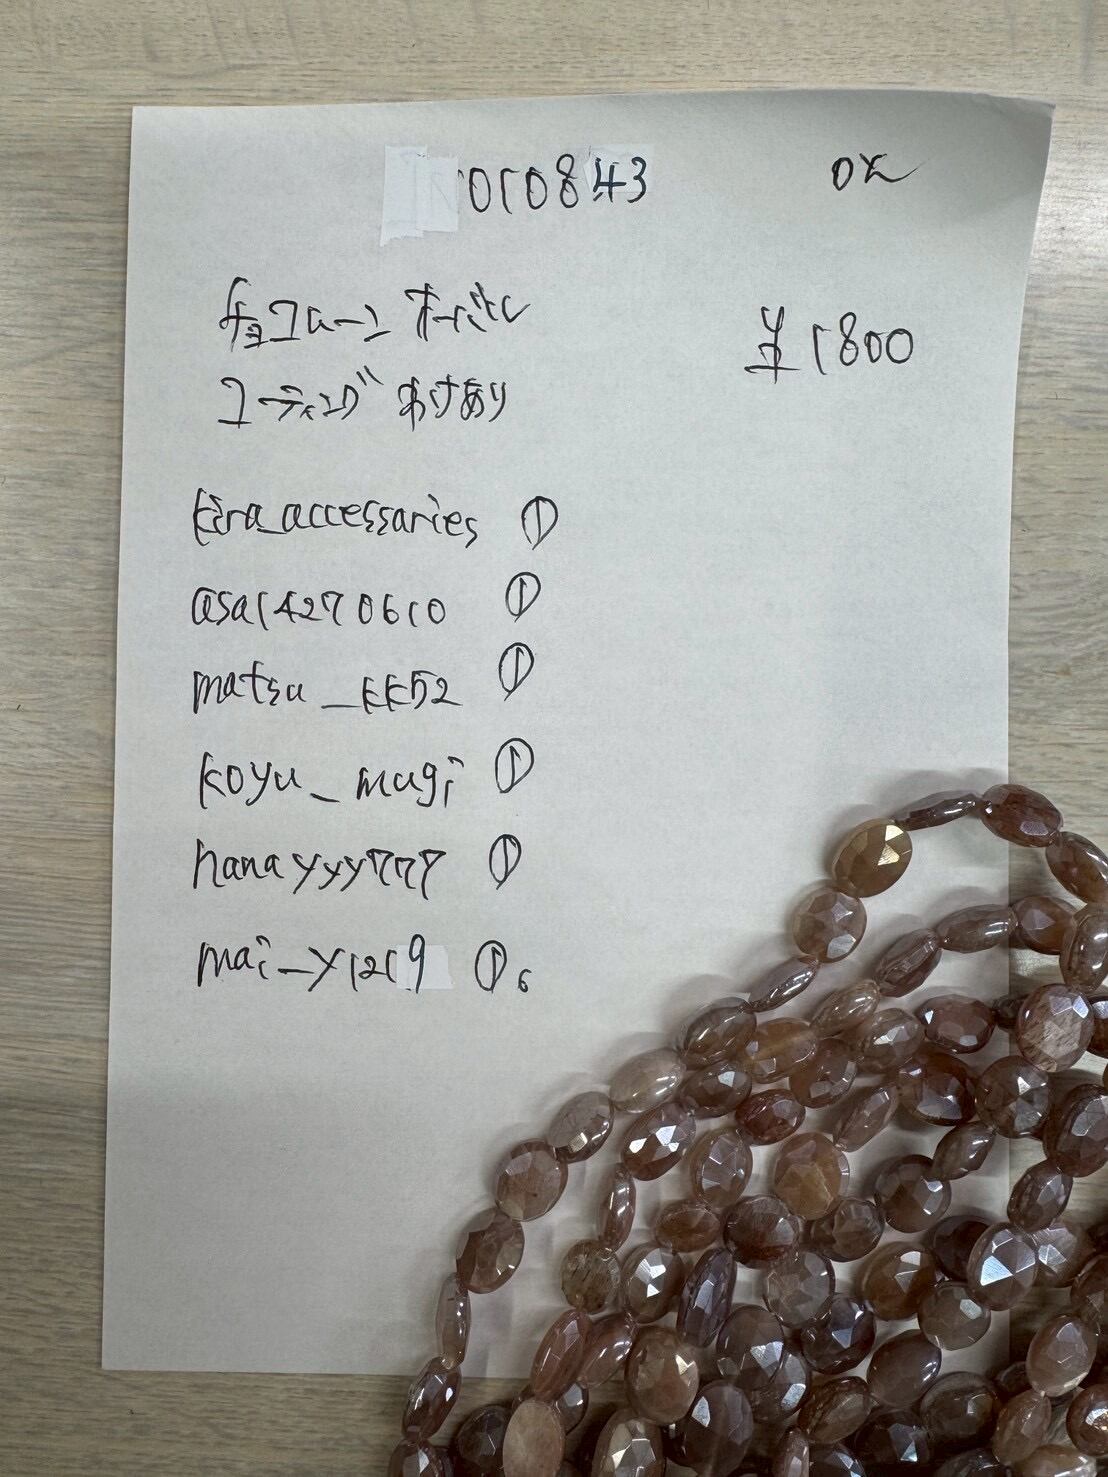 010843 OK
チョコムーン オーバル ¥1800
コーティング わけあり
kira_accessaries ①
asa14270610 ①
matsu_kk52 ①
koyu_mugi ①
hanayyy777 ①
mai_y1219 ① 6